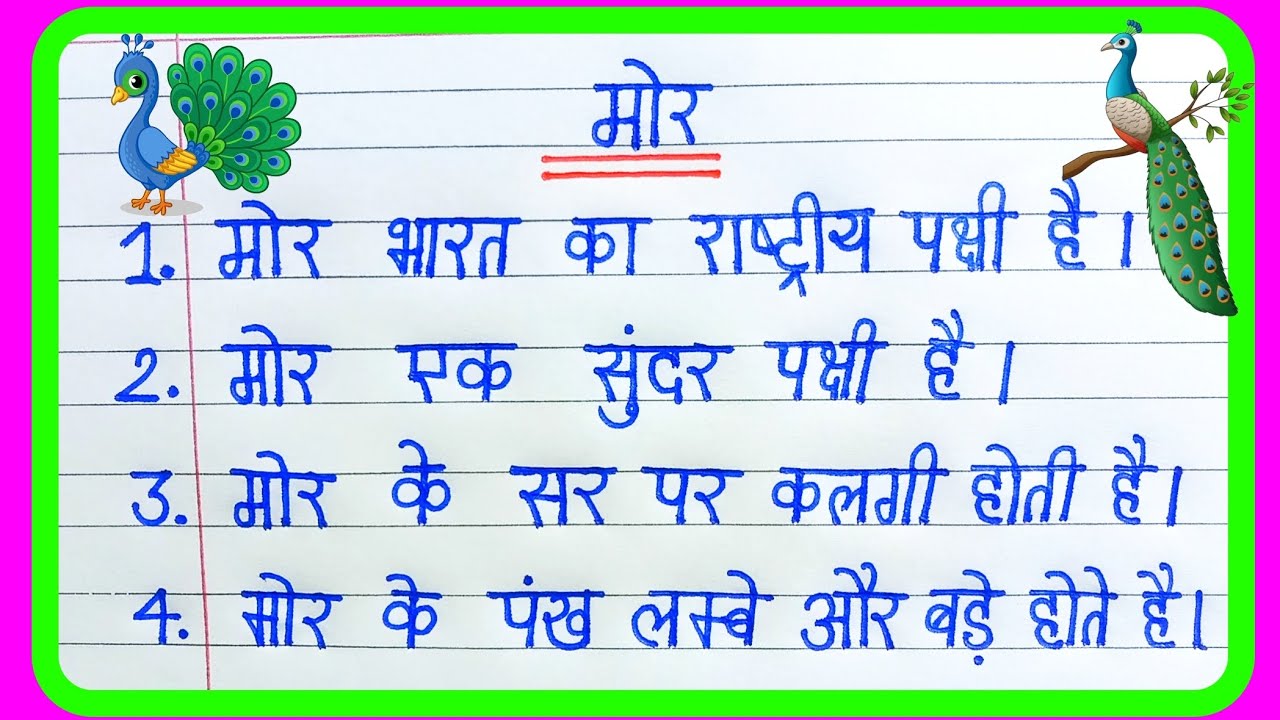 मोर
1. मोर भारत का राष्ट्रीय पक्षी है।
2. मोर एक सुंदर पक्षी है।
3. मोर के सर पर कलगी होती है।
4. मोर के पंख लम्बे और बड़े होते है।